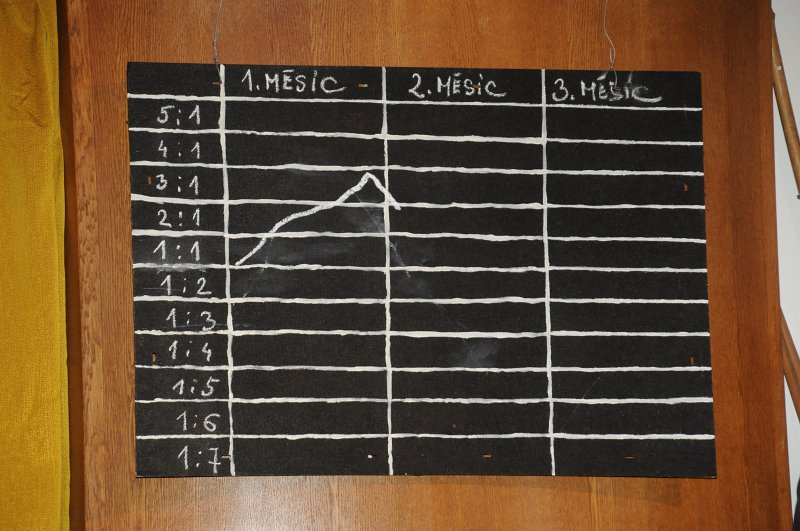 1. MĚSÍC - 2. MĚSÍC 3. MĚSÍC
5:1
4:1
3:1
2:1
1:1
1:2
1:3
1:4
1:5
1:6
1:7